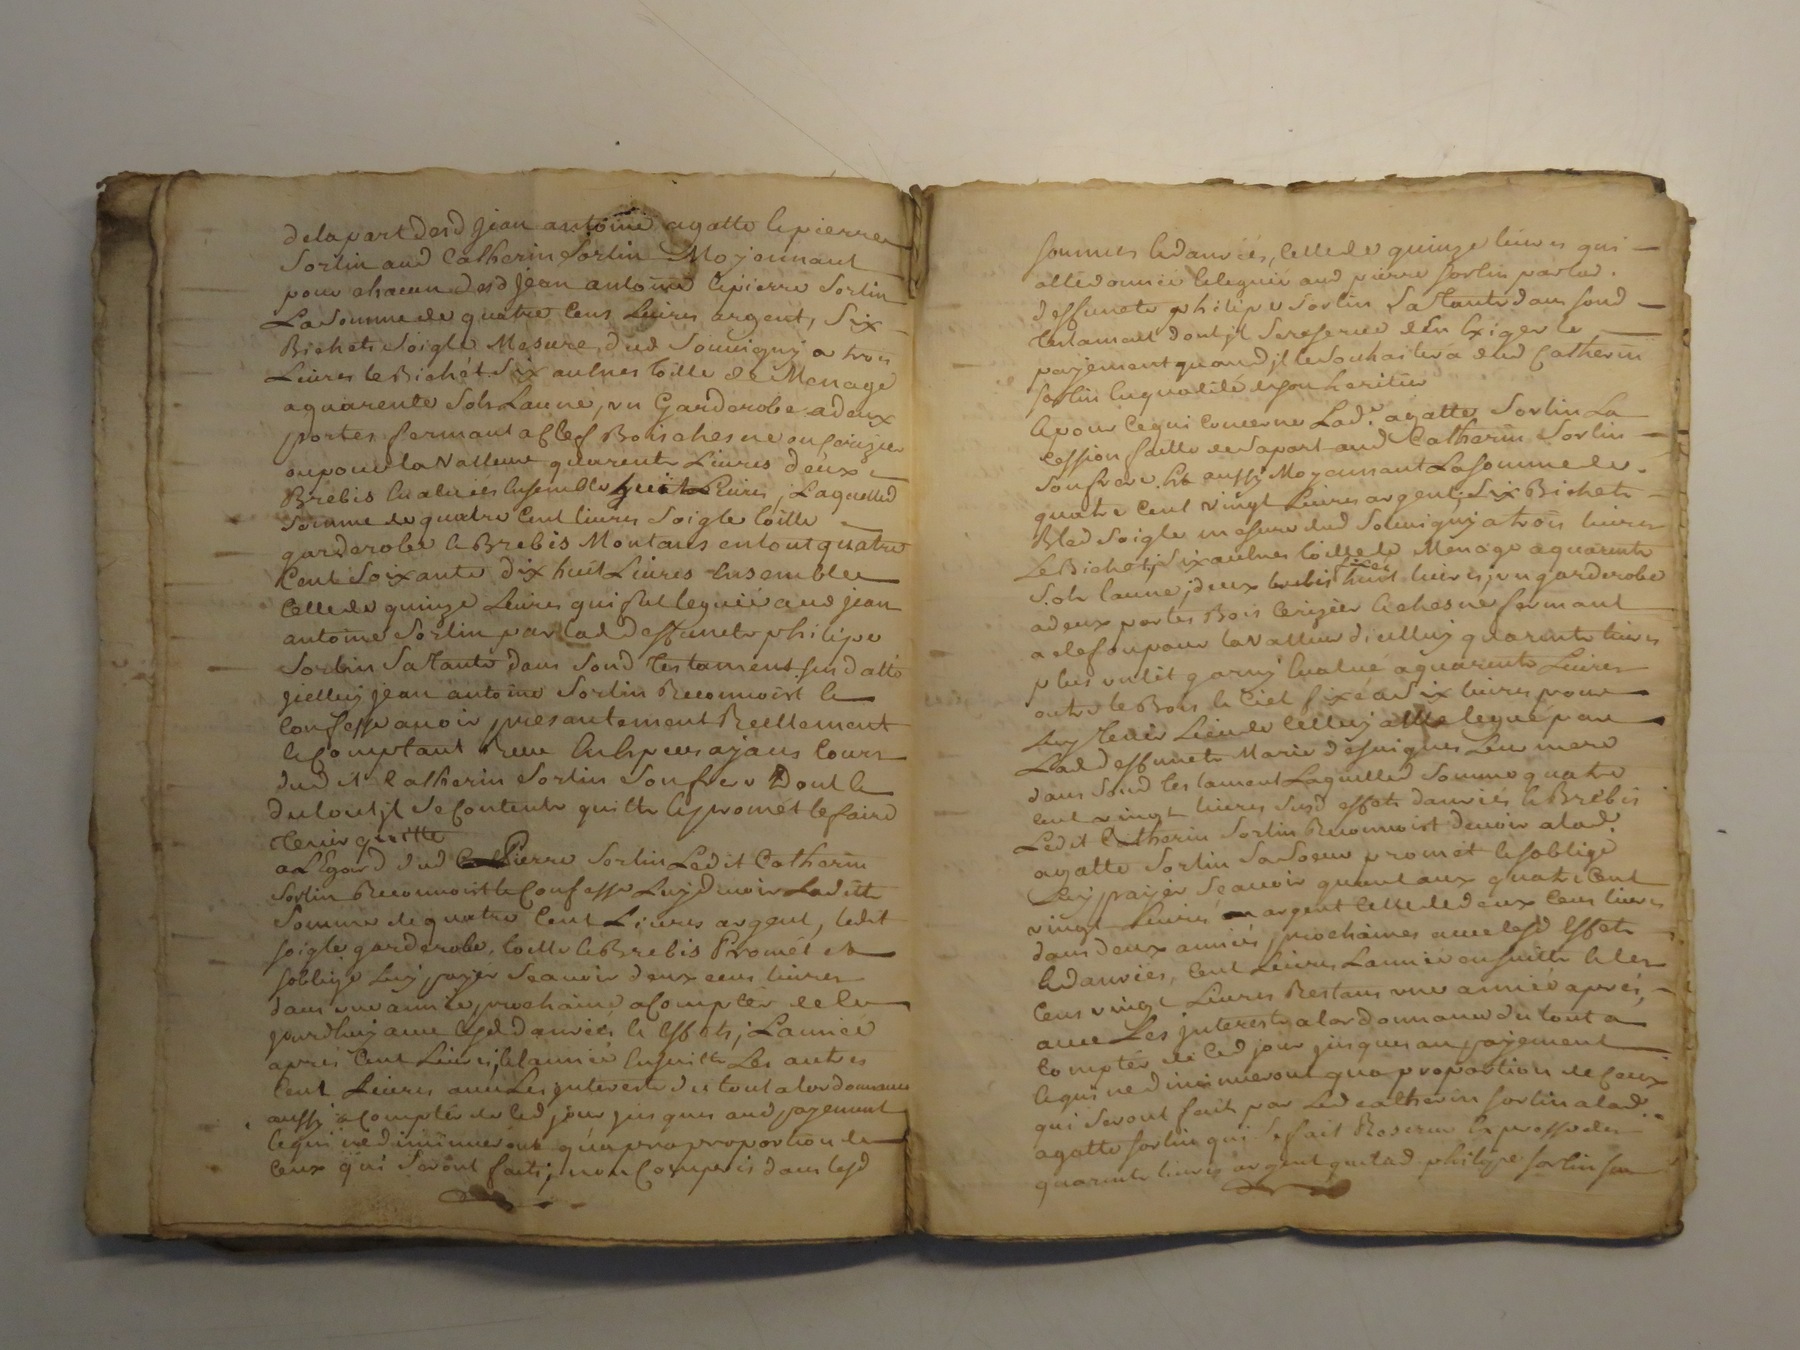 dela part desd Jean antoine agatte & pierre
Sorlin aud Catherin Sorlin Moyennant
pour chacun desd Jean antoine & pierre Sorlin
La Somme de quatre Cens Livres argent, Six
Bichets Soigle Mesure dud Souvigny a trois
Livres le Bichét Six aulnes toille de Menage
a quarente Sols Laune, vn Garderobe a deux
portes fermant a Clef Bois chesne ou Cerizier
ou pour la Valleur quarente Livres deux
Brebis Evaluées Ensemble huit Livres, Laquelled
Somme de quatre Cent livres Soigle toille
garderobe & Brebis Montans en tout quatre
Cent Soixante dix huit Livres Ensemble
Celle de quinze Livres qui fut leguée aud jean
antoine Sorlin par lad deffuncte philipe
Sorlin Sa Tante dans Sond Testament Susd datté
jcelluy jean antoine Sorlin Reconnoist &
Confesse avoir presantement Reellement
& Comptant Receu En Especes ayans Cours
dud St Catherin Sorlin Son frere Dont &
du tout jl Se Contente quitte & promet le faire
Tenir quitte
a L'Egard dud Pierre Sorlin Ledit Catherin
Sorlin Reconnoist & Confesse Luy devoir Laditte
Somme de quatre Cent Livres argent, ledit
soigle garderobe, toille & Brebis Promet &
soblige Luy payer Scavoir deux cens livres
dans vne année prochaine a Compter de Ce
jourdhuy avec lesd danrées & Effets, Lannée
apres Cent Livres, & lannée Ensuitte Les autres
Cent Livres avec Les jnterests du tout a lordonnance
aussy a Compter de Ced jour jusques aud payement
& qui ne diminueront qu'a pro proportion de
Ceux qui Seront faits, non Compris dans lesd
sommes & danrées, Celle de quinze livres qui
a été donnée & leguée aud pierre Sorlin par lad.
deffuncte philipe Sorlin Sa Tante dans Sond
Testament dont jl Se reserve d'En Exiger le
payement quand jl le Souhaitera dud Catherin
Sorlin En qualité de son heritier
& pour Ce qui Concerne Lad.e agatte Sorlin La
Cession faitte de Sa part aud Catherin Sorlin
Son frere. Est aussy Moyennant La Somme de
quatre Cent vingt Livres argent, Six Bichets
Bled Soigle mesure dud Souvigny a trois livres
Le Bichet, Six aulnes toille de Menage a quarente
Sols laune, deux brebis huit livres, vn garderobe
a deux portes Bois Cerizier & chesne fermant
a clef ou pour la Valleur dicelluy quarente livres
plus vn lit garny Evalué a quarente Livres
outre le Bois & Ciel fixé a Six livres pour
Luy Tenir Lieu de Celluy a Elle legué par
Lad deffuncte Marie desvignes Leur mere
dans Sond testament Laquelled Somme quatre
cent vingt livres Susd effets danrées & Brebis
Ledit Catherin Sorlin Reconnoist devoir a lad.
agatte Sorlin Sa Soeur promet & Soblige
Luy payer Scavoir quant aux quatre Cent
vingt Livres argent Celle de deux Cens livres
dans deux années prochaines avec lesd Effets
& danrées, Cent Livres Lannée ensuitte & les
Cens vingt Livres Restans vne année aprés,
avec Les jnterests a lordonnance du tout a
Compter de Ced jour jusques au payement
& qui ne diminueront qu'a proportion de Ceux
qui Seront faits par Led catherin Sorlin a lad.
agatte Sorlin qui Se fait Reserve Expresse des
quarente livres argent que lad philipe Sorlin Sa